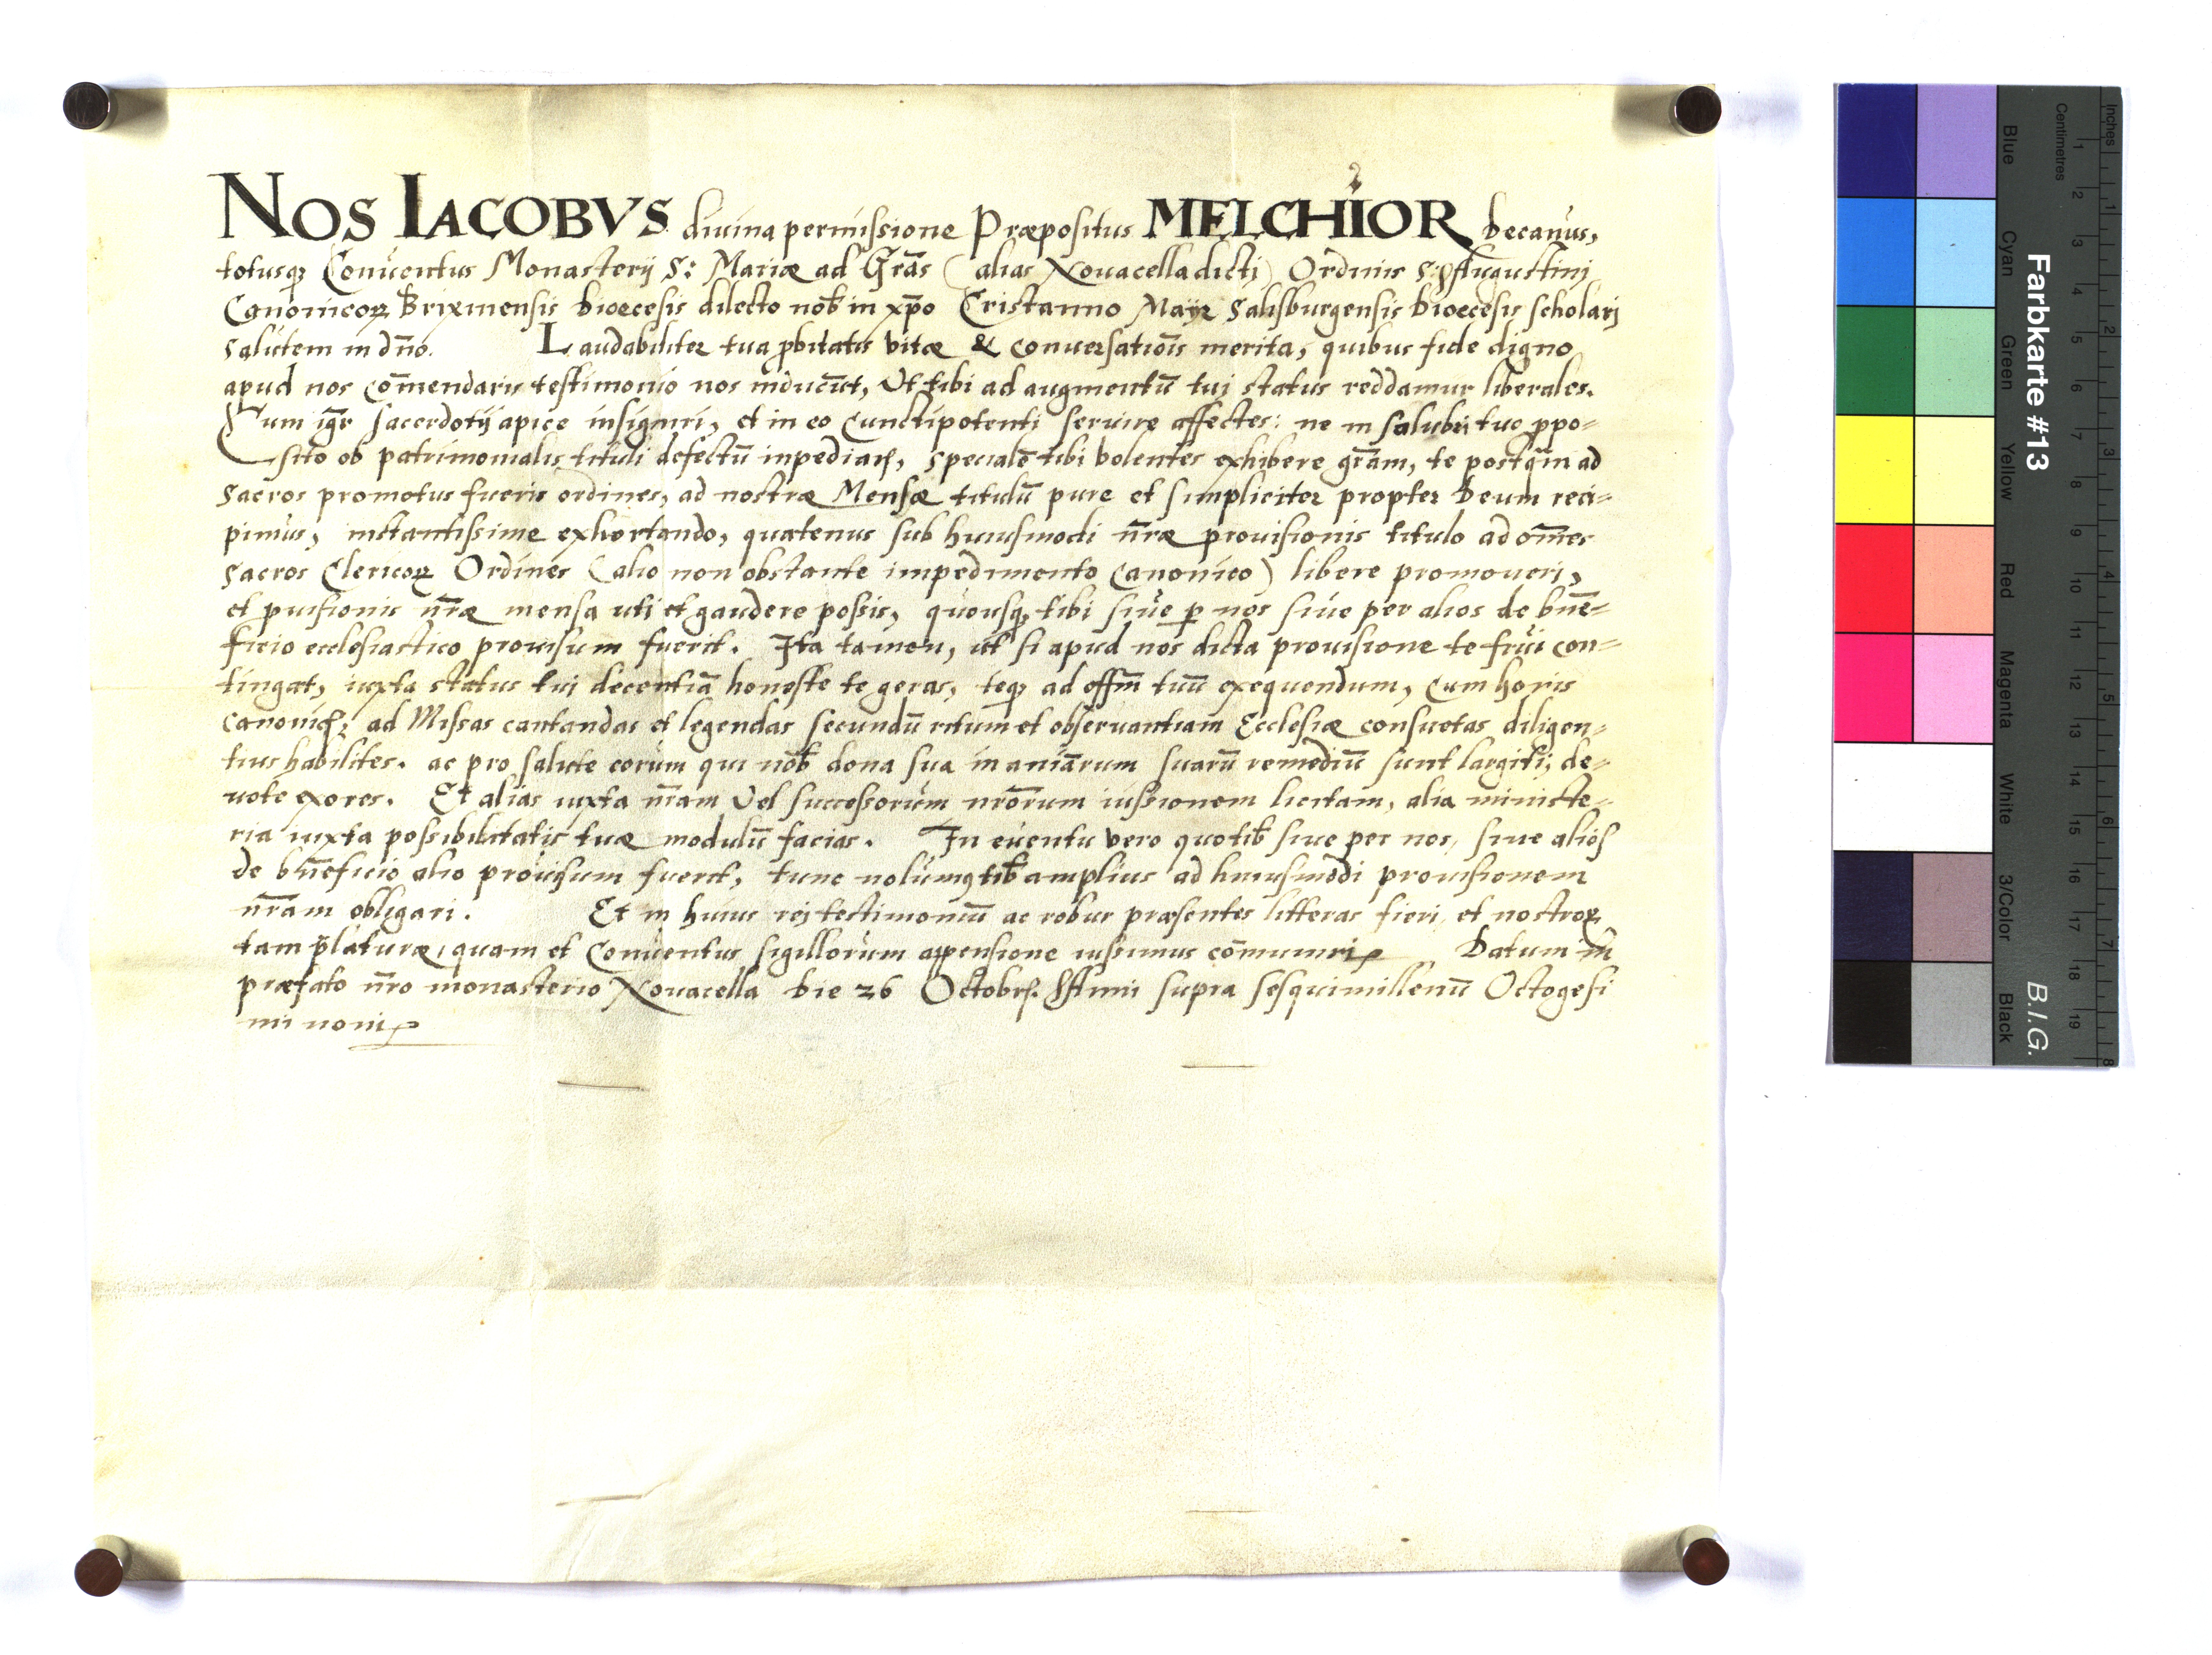 NOS IACOBVS diuina permissione Præpositus MELCHIOR Decanus,
totusq; Conuentus Monasterij S: Mariæ ad Grãs (alias Nouacella dicti) Ordinis S: Augustinj
Canonicoꝝ Brixinensis Dioecesis dilecto nob̃ in xp̃o Cristanno Mayr Salisburgensis Dioecesis scholarj
salutem in dño. Laudabiliter tua ꝓbitatis vitæ & conuersatiõis merita, quibus fide digno
apud nos com̃endaris testimonio nos inducũt, Vt tibi ad augmentũ tuj status reddamur liberales.
Cum igr̃ sacerdotij apice insigniri, et in eo Cunctipotenti seruire affectes: ne in salubri tuo ꝓpo-
sito ob patrimonialis tituli defectũ inpediaris, specialẽ tibi volentes exhibere grãm, te postq̃m ad
sacros promotus fueris ordines, ad nostræ Mensæ titulũ pure et simpliciter propter Deum reci-
pimus, instantissime exhortando, quatenus sub huiusmodi nr̃æ prouisionis titulo ad om̃es
sacros Clericoꝝ Ordines (alio non obstante impedimento Canonico) libere promoueri,
et ꝓuisionis nr̃æ mensa uti et gaudere possis, quousq; tibi siue ꝑ nos siue per alios de bñe-
ficio ecclesiastico prouisum fuerit. Ita tamen, ut si apud nos dicta prouisione te frui con-
tingat, iuxta status tui decentiã honeste te geras, teq; ad offm̃ tuũ exequendum, Cum horis
canonicis; ad Missas cantandas et legendas secundũ ritum et obseruantiam Ecclesiæ consuetas diligen-
tius habilites. ac pro salute eorum qui nob̃ dona sua in aniãrum suarũ remediũ sunt largiti; de-
uote exores. Et alias iuxta nr̃am Vel successorum nr̃orum iussionem licitam, alia ministe-
ria iuxta possibilitatis tuæ modulũ facias. In euentu vero quo tib̃ siue per nos, siue alios
de bñeficio alio prouisum fuerit, tunc nolumꝰ tib̃ amplius ad huiusmodi prouisionem
nr̃am obligari. Et in huius rej testimoniũ ac robur præsentes litteras fieri, et nostroꝝ
tam p̃laturæ, quam et Conuentus sigillorum appensione iussimus com̃uniri Datum in
præfato nr̃o monasterio Nouacella Die 26 Octobris. Anni supra sesquimillenũ Octogesi
mi noni
Farbkarte #13
B.I.G.
Inches
Centimetres
1 2 3 4 5 6 7 8 9 10 11 12 13 14 15 16 17 18 19
1 2 3 4 5 6 7 8
Blue
Cyan
Green
Yellow
Red
Magenta
White
3/Color
Black